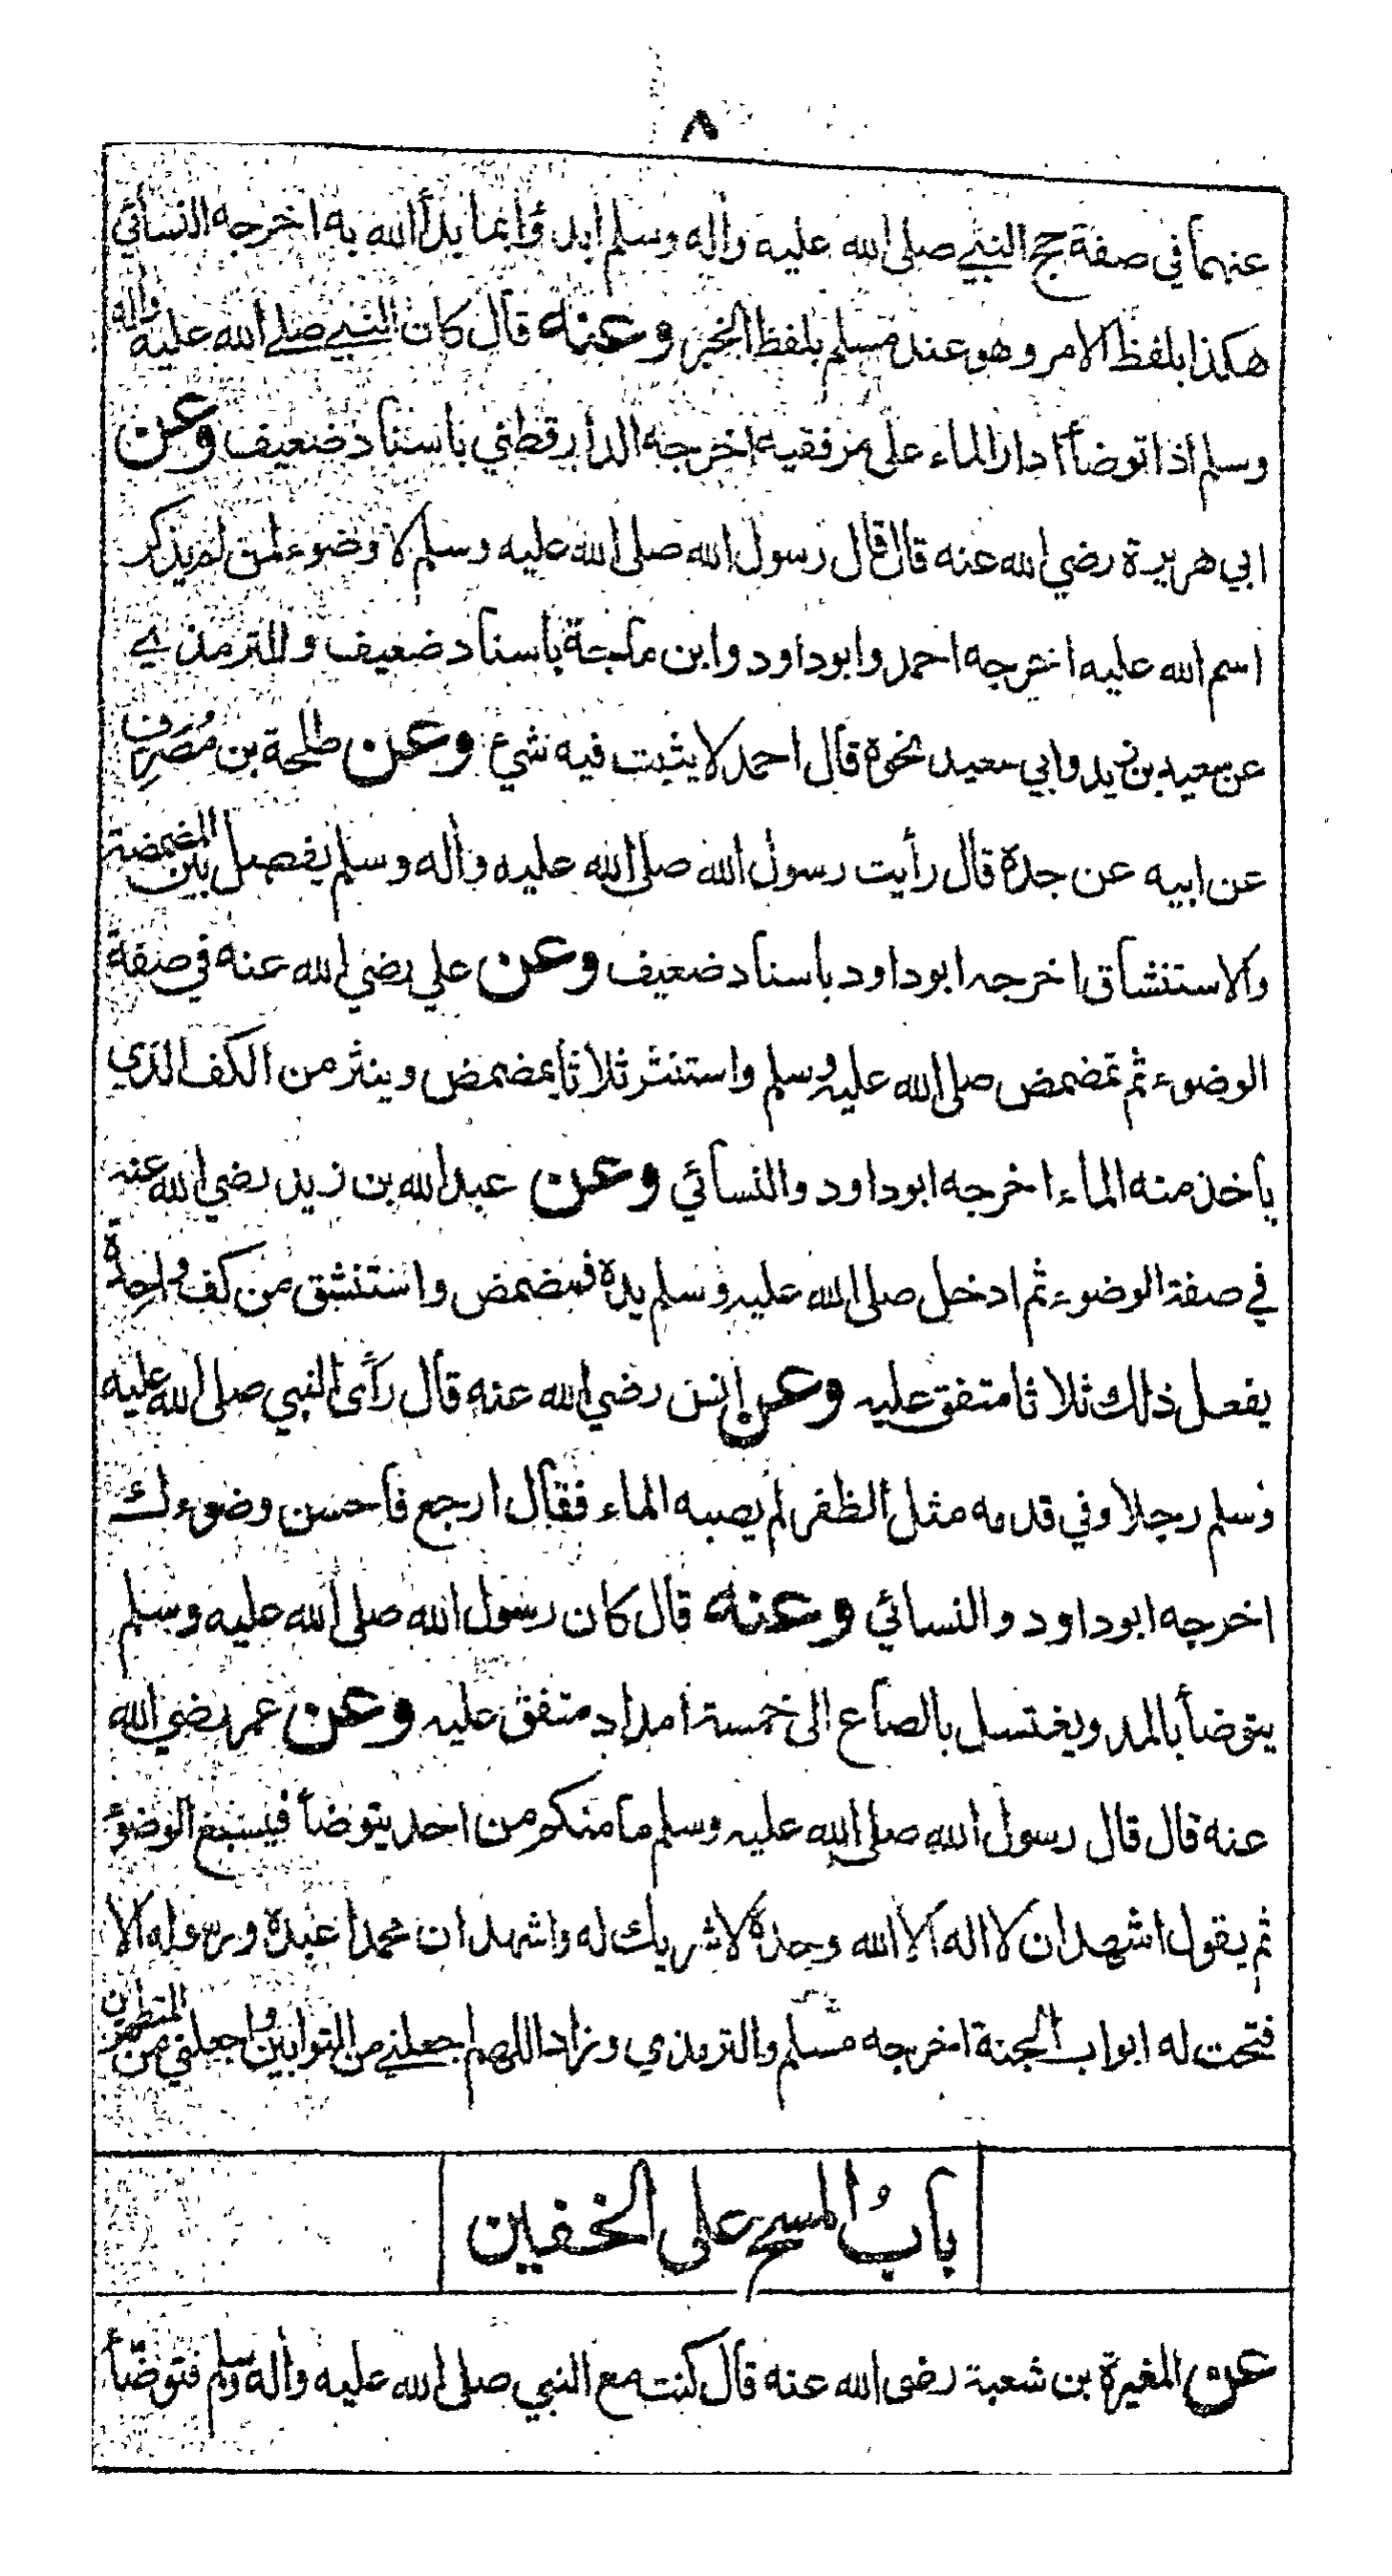 ٨
عنهما في صفة حج النبي صلى الله عليه وأله وسلم ابدؤا بما بدأ الله به اخرجه النسائي
هكذا بلفظ الامر وهو عند مسلم بلفظ الخبر وعنه قال كان النبي صلى الله عليه وأله
وسلم اذا توضأ ادار الماء على مرفقيه اخرجه الدارقطني باسناد ضعيف وعن
ابي هريرة رضي الله عنه قال قال رسول الله صلى الله عليه وسلم لا وضوء لمن لم يذكر
اسم الله عليه اخرجه احمد وابوداود وابن ماجة باسناد ضعيف وللترمذي
عن سعيد بن زيد وابي سعيد نحوه قال احمد لا يثبت فيه شيء وعن طلحة بن مُصَرِّف
عن ابيه عن جده قال رأيت رسول الله صلى الله عليه وأله وسلم يفصل بين المضمضة
والاستنشاق اخرجه ابوداود باسناد ضعيف وعن علي رضي الله عنه في صفة
الوضوء ثم تمضمض صلى الله عليه وسلم واستنثر ثلاثا يمضمض وينثر من الكف الذي
ياخذ منه الماء اخرجه ابوداود والنسائي وعن عبد الله بن زيد رضي الله عنه
في صفة الوضوء ثم ادخل صلى الله عليه وسلم يده فمضمض واستنشق من كف واحدة
يفعل ذلك ثلاثا متفق عليه وعن انس رضي الله عنه قال رأى النبي صلى الله عليه
وسلم رجلا وفي قدمه مثل الظفر لم يصبه الماء فقال ارجع فاحسن وضوءك
اخرجه ابوداود والنسائي وعنه قال كان رسول الله صلى الله عليه وسلم
يتوضأ بالمد ويغتسل بالصاع الى خمسة امداد متفق عليه وعن عمر رضي الله
عنه قال قال رسول الله صلى الله عليه وسلم ما منكم من احد يتوضأ فيسبغ الوضوء
ثم يقول اشهد ان لا اله الا الله وحده لا شريك له واشهد ان محمدا عبده ورسوله الا
فتحت له ابواب الجنة اخرجه مسلم والترمذي وزاد اللهم اجعلني من التوابين واجعلني من المتطهرين
بابُ المسح على الخفين
عن المغيرة بن شعبة رضي الله عنه قال كنت مع النبي صلى الله عليه وأله وسلم فتوضأ